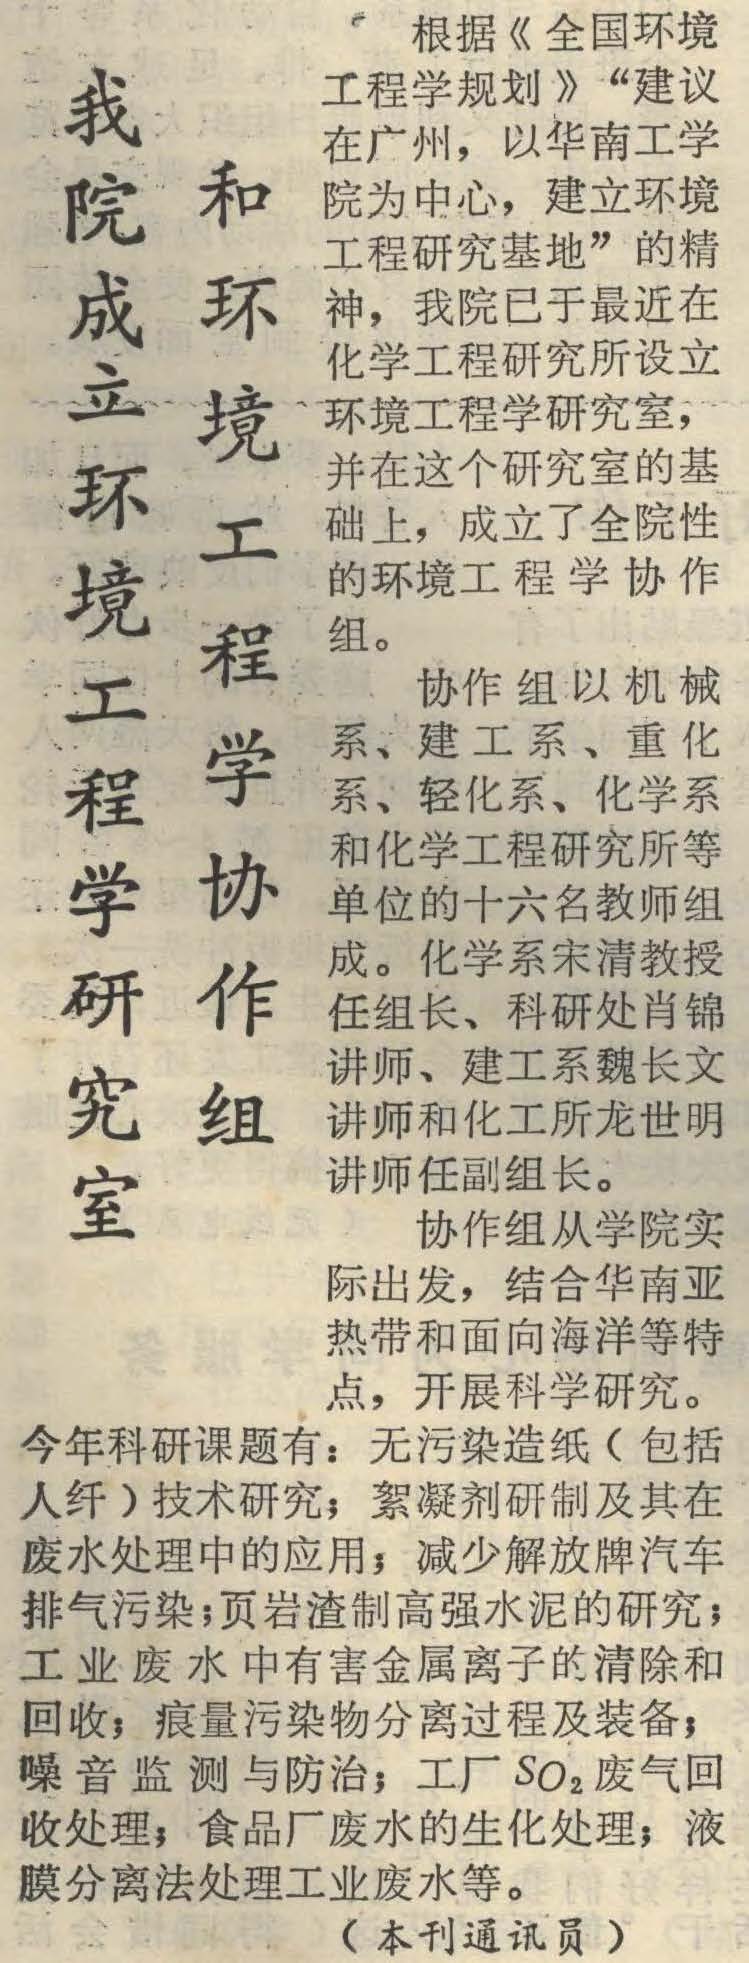 我院成立环境工程学研究室
和环境工程学协作组
根据《全国环境
工程学规划》“建议
在广州，以华南工学
院为中心，建立环境
工程研究基地”的精
神，我院已于最近在
化学工程研究所设立
环境工程学研究室，
并在这个研究室的基
础上，成立了全院性
的环境工程学协作
组。
协作组以机械
系、建工系、重化
系、轻化系、化学系
和化学工程研究所等
单位的十六名教师组
成。化学系宋清教授
任组长、科研处肖锦
讲师、建工系魏长文
讲师和化工所龙世明
讲师任副组长。
协作组从学院实
际出发，结合华南亚
热带和面向海洋等特
点，开展科学研究。
今年科研课题有：无污染造纸（包括
人纤）技术研究；絮凝剂研制及其在
废水处理中的应用；减少解放牌汽车
排气污染；页岩渣制高强水泥的研究；
工业废水中有害金属离子的清除和
回收；痕量污染物分离过程及装备；
噪音监测与防治；工厂SO₂废气回
收处理；食品厂废水的生化处理；液
膜分离法处理工业废水等。
（本刊通讯员）